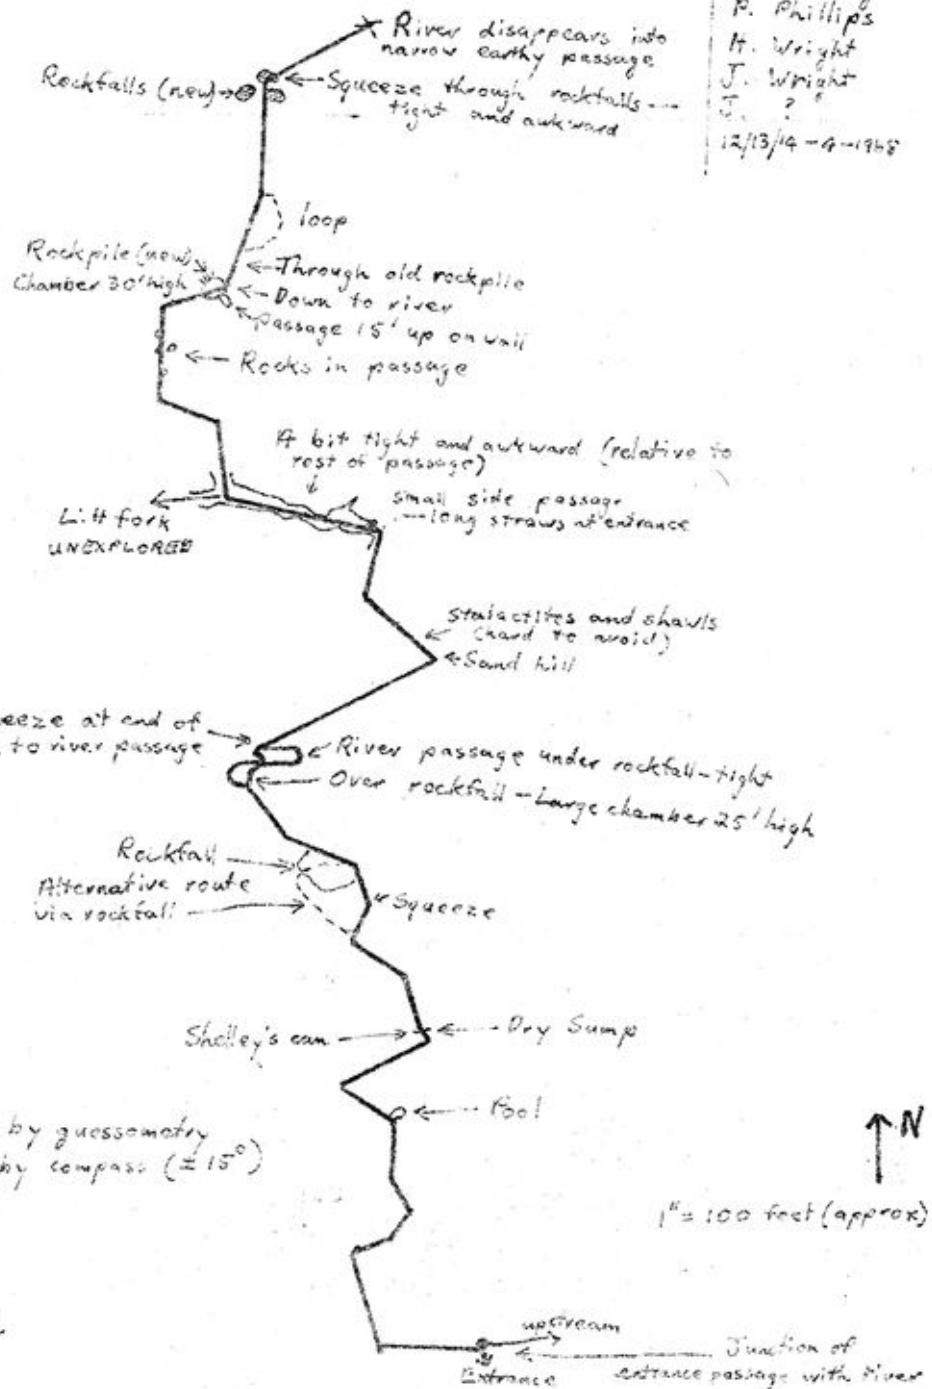 P. Phillips
H. Wright
J. Wright
J. ?
12/13/14 - 4 - 1968
River disappears into
narrow earthy passage
Rockfalls (new)
Squeeze through rockfalls
tight and awkward
loop
Rockpile (new)
Chamber 30' high
Through old rockpile
Down to river
Passage 15' up on wall
Rocks in passage
A bit tight and awkward (relative to
rest of passage)
small side passage
long straws at entrance
L.H fork
UNEXPLORED
stalactites and shawls
(hard to avoid)
Sand hill
eeze at end of
to river passage
River passage under rockfall - tight
Over rockfall - Large chamber 25' high
Rockfall
Alternative route
via rockfall
Squeeze
Shelley's can
Dry Sump
Pool
by guessometry
by compass (± 15°)
N
1" = 100 feet (approx)
upstream
Entrance
Junction of
entrance passage with river